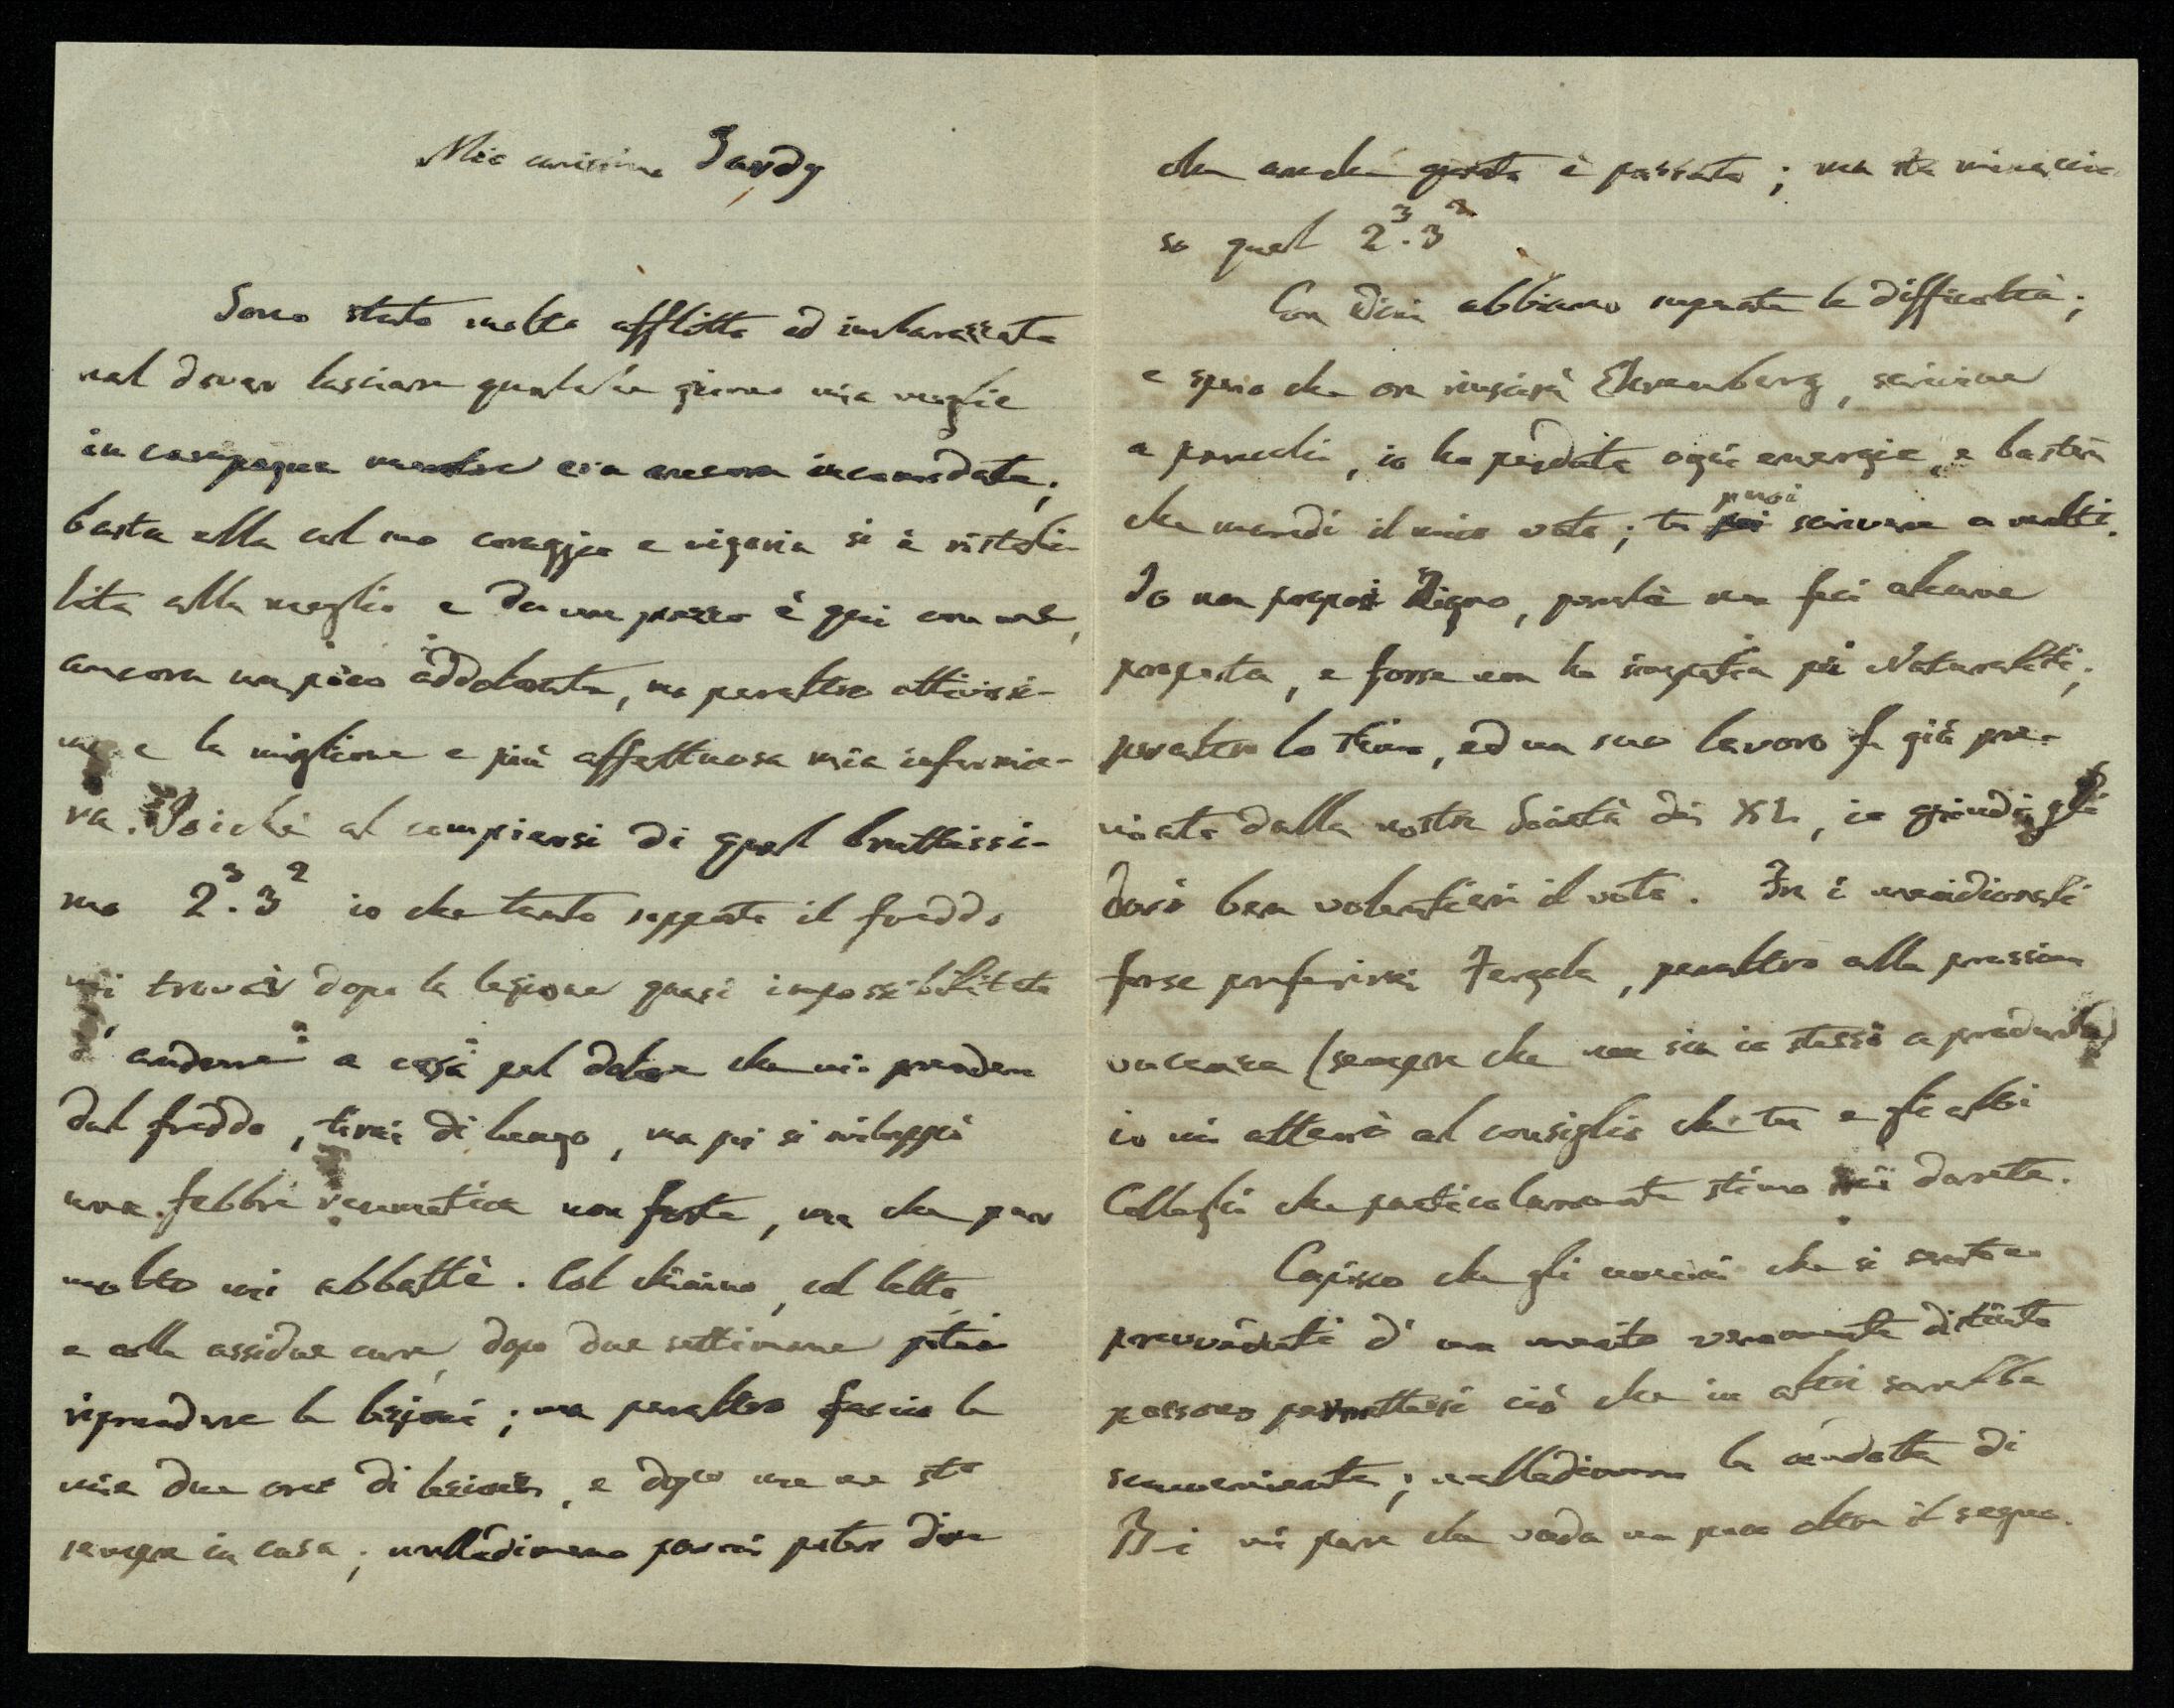 Mio carissimo Tardy
Sono stato molto afflitto ed imbarazzato
nel dover lasciare qualche giorno mia moglie
in campagna mentre era ancora incomodata;
basta ella col suo coraggio e vigoria si è ristabi-
lita alla meglio e da un pezzo è qui con me,
ancora un poco addolorata, ma peraltro attivissi-
ma e la migliore e più affettuosa mia infermie-
ra. Poichè al compiersi di quel bruttissi-
mo 2³.3² io che tanto sopporto il freddo
mi trovai dopo la lezione quasi impossibilitato
andare a casa pel dolore che mi prendeva
dal freddo, tirai di lungo, ma poi si sviluppò
una febbre reumatica non forte, ma che pur
molto mi abbattè. Col chinino, col letto
e colle assidue cure, dopo due settimane potei
riprendere le lezioni; ma peraltro faccio le
mie due ore di lezione, e dopo me ne sto
sempre in casa; nulladimeno parmi poter dire
che anche questa è passata; ma sta minaccio
so quel 2³.3²
Con Dini abbiamo superato le difficoltà;
e spero che ora riuscirà Ehrenberg, scrivine
a parecchi, io ho perduta ogni energia, e basterà
che mandi il mio voto; tu puoi scrivere a molti.
Io non proposi Zigno, perchè non feci alcuna
proposta, e forse non ho simpatia pei Naturalisti;
peraltro lo stimo, ed un suo lavoro fu già pre-
miato dalla nostra Società dei XL, io quindi gli
darò ben volentieri il voto. Fra i meridionali
forse preferirei Fergola, peraltro alla prossima
vacanza (sempre che non sia io stesso a produrla)
io mi atterrò al consiglio che tu e gli altri
Colleghi che particolarmente stimo mi darete.
Capisco che gli uomini che si sentono
provveduti d'un merito veramente distinto
possono permettersi ciò che in altri sarebbe
sconveniente; nulladimeno la condotta di
B-i mi pare che vada un poco oltre il segno.